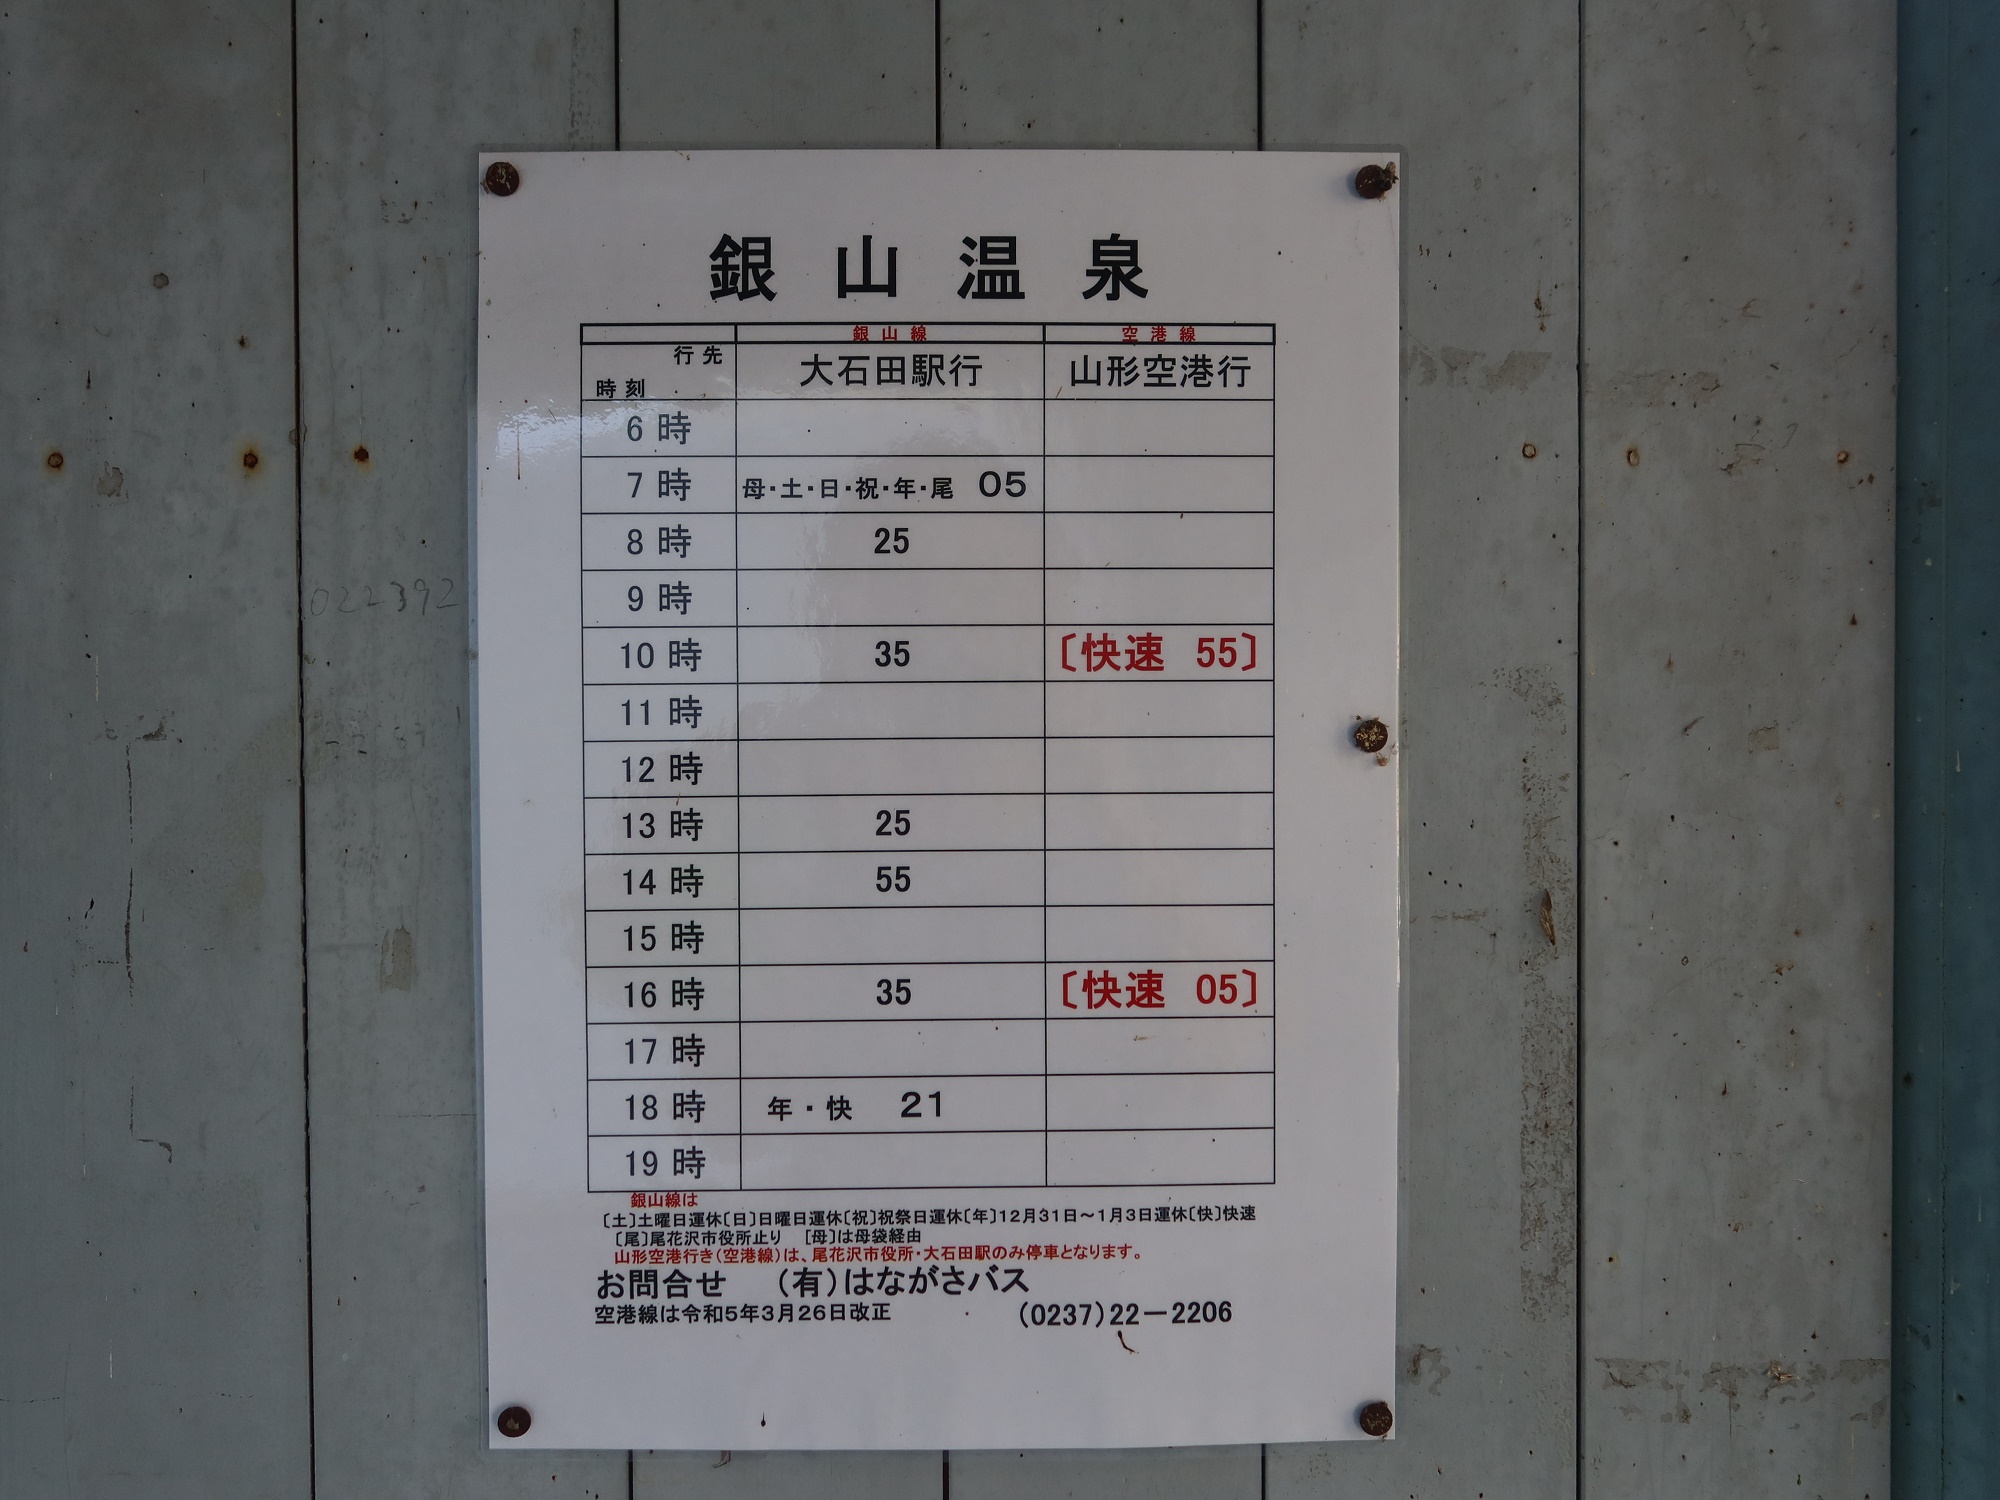 銀山温泉
銀山線 空港線
行先 時刻 大石田駅行 山形空港行
6時
7時 母・土・日・祝・年・尾 05
8時 25
9時
10時 35 〔快速 55〕
11時
12時
13時 25
14時 55
15時
16時 35 〔快速 05〕
17時
18時 年・快 21
19時
銀山線は
〔土〕土曜日運休〔日〕日曜日運休〔祝〕祝祭日運休〔年〕12月31日～1月3日運休〔快〕快速
〔尾〕尾花沢市役所止り [母]は母袋経由
山形空港行き(空港線)は、尾花沢市役所・大石田駅のみ停車となります。
お問合せ (有)はながさバス
空港線は令和5年3月26日改正 (0237)22－2206
022392